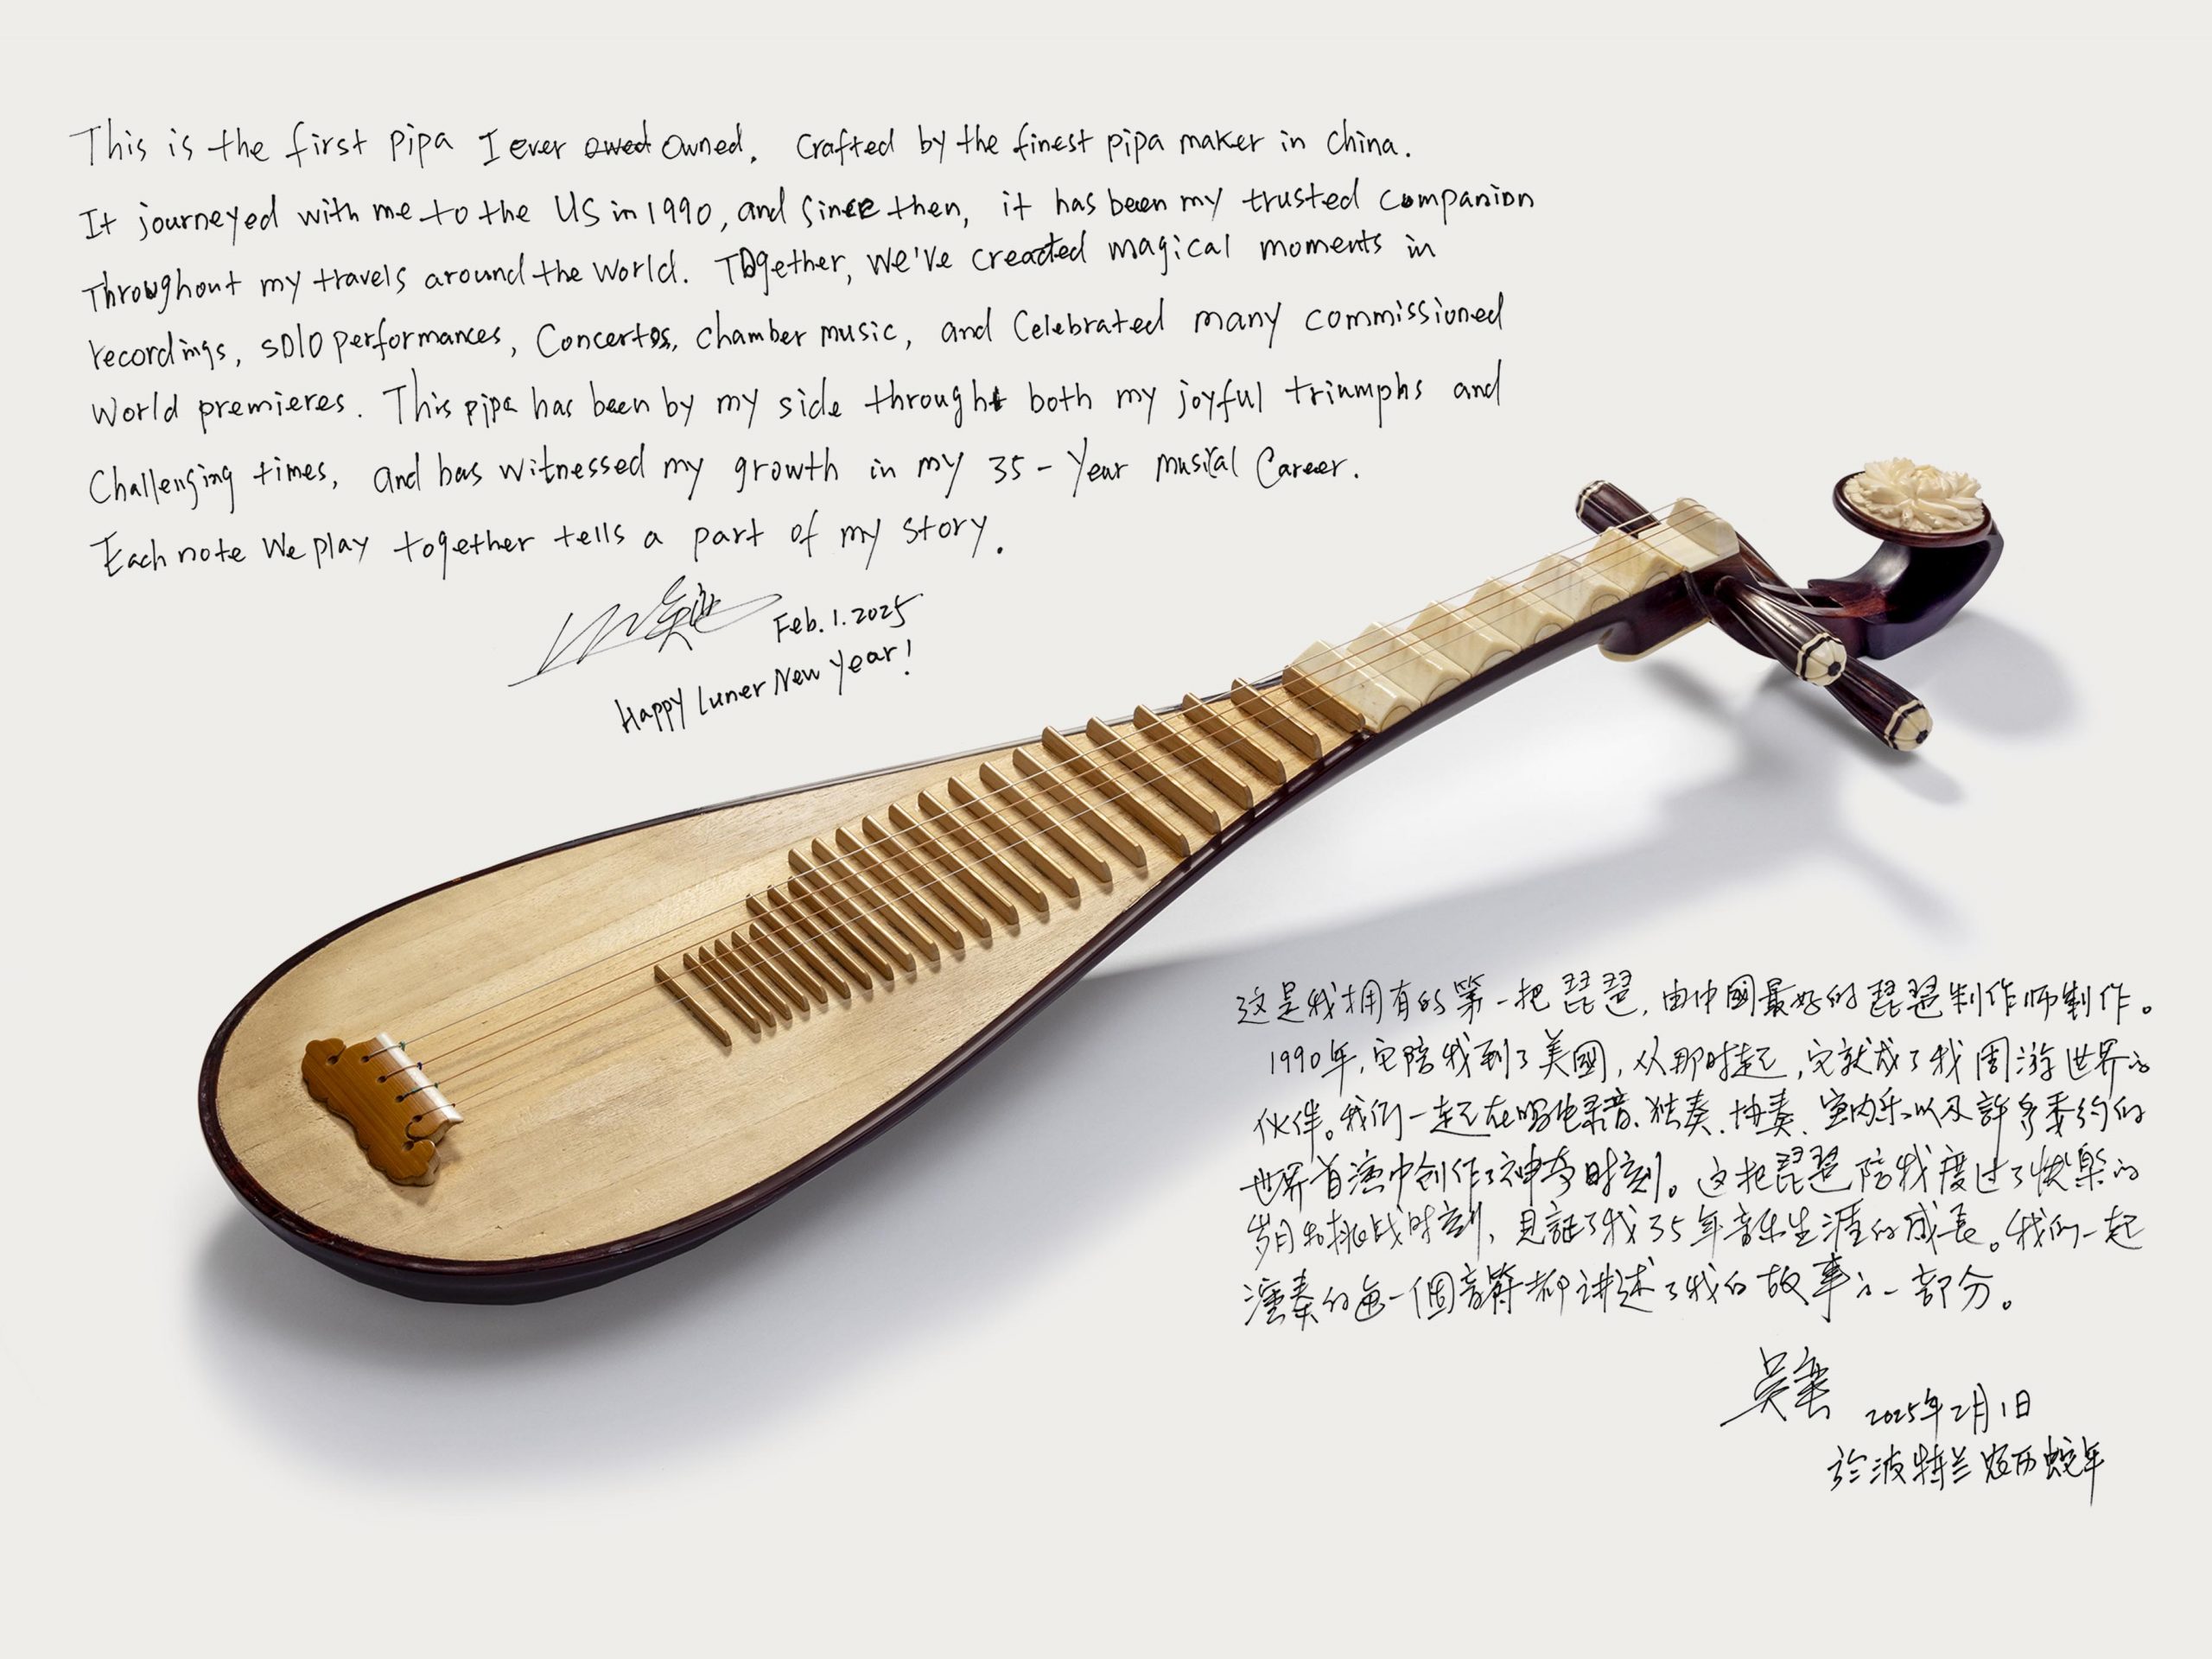 This is the first pipa I ever owed owned. Crafted by the finest pipa maker in China.
It journeyed with me to the US in 1990, and since then, it has been my trusted companion
throughout my travels around the world. Together, we've created magical moments in
recordings, solo performances, Concertos, chamber music, and celebrated many commissioned
World premieres. This pipa has been by my side throught both my joyful triumphs and
Challenging times, and has witnessed my growth in my 35-Year musical Career.
Each note We play together tells a part of my story.
Feb. 1. 2025
Happy Luner New Year!
这是我拥有的第一把琵琶，由中國最好的琵琶制作师制作。
1990年，它陪我到了美國，从那时起，它就成了我周游世界的
伙伴。我们一起在唱片录音、独奏、协奏、室内乐以及許多委约的
世界首演中创作了神奇时刻。这把琵琶陪我度过了快樂的
岁月和挑战时刻，見証了我35年音乐生涯的成長。我们一起
演奏的每一個音符都讲述了我的故事的一部分。
吴蛮 2025年2月1日
於波特兰农历蛇年